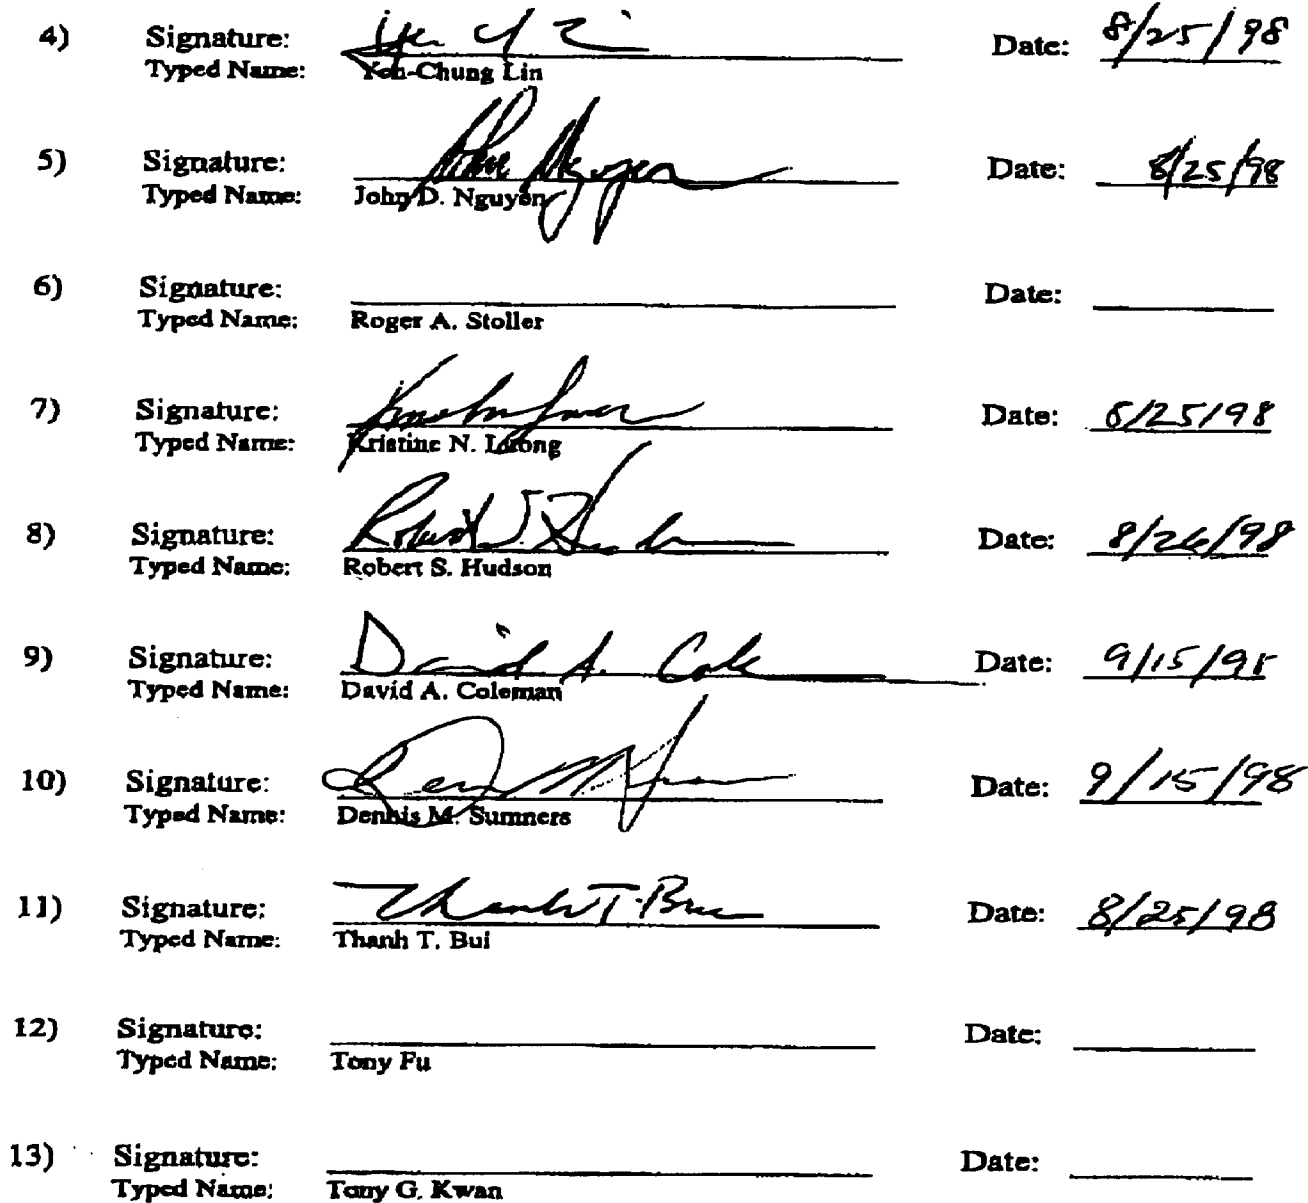 4) Signature: Date: 8/25/98
Typed Name: Yen-Chung Lin
5) Signature: John Nguyen Date: 8/25/98
Typed Name: John D. Nguyen
6) Signature: Date:
Typed Name: Roger A. Stoller
7) Signature: Date: 8/25/98
Typed Name: Kristine N. Luong
8) Signature: Robert S. Hudson Date: 8/26/98
Typed Name: Robert S. Hudson
9) Signature: David A. Cole Date: 9/15/98
Typed Name: David A. Coleman
10) Signature: Date: 9/15/98
Typed Name: Dennis M. Sumners
11) Signature: Thanh T. Bui Date: 8/25/98
Typed Name: Thanh T. Bui
12) Signature: Date:
Typed Name: Tony Fu
13) Signature: Date:
Typed Name: Tony G. Kwan